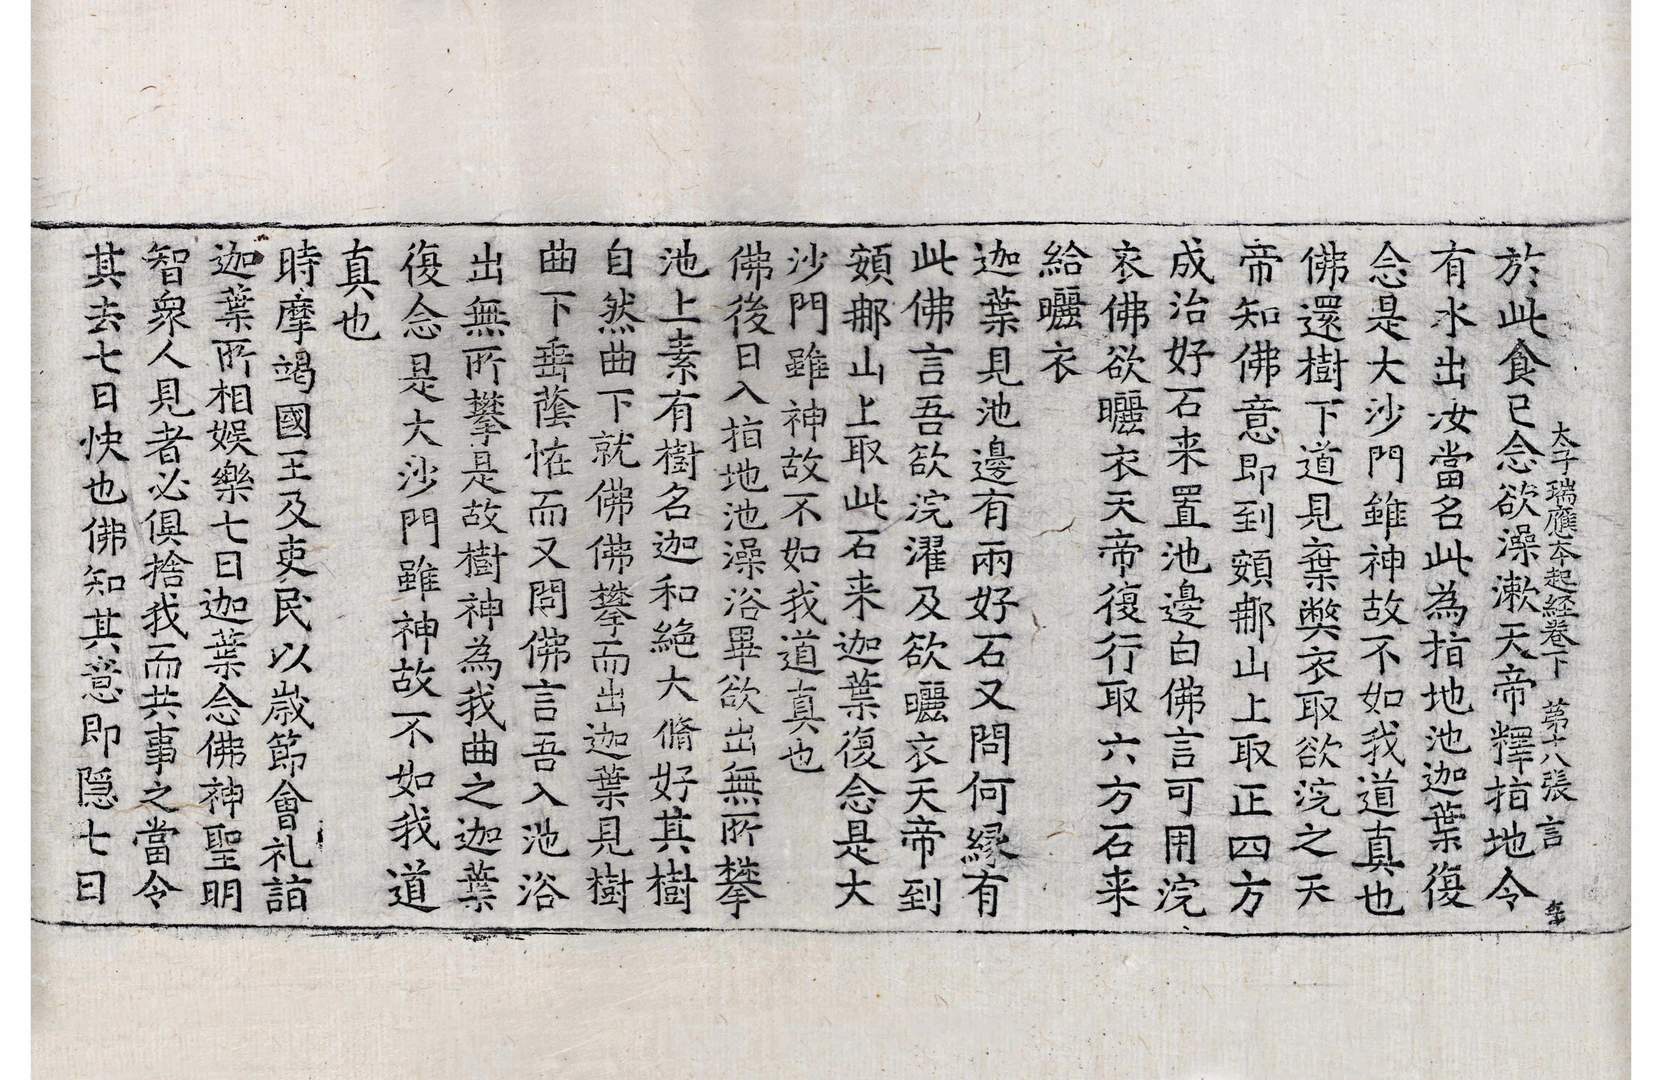 太子瑞應本起經卷下 第十八張 言
於此食已念欲澡漱天帝釋指地令
有水出汝當名此為指地池迦葉復
念是大沙門雖神故不如我道真也
佛還樹下道見棄弊衣取欲浣之天
帝知佛意即到頞那山上取正四方
成治好石来置池邊白佛言可用浣
衣佛欲曬衣天帝復行取六方石来
給曬衣
迦葉見池邊有兩好石又問何緣有
此佛言吾欲浣濯及欲曬衣天帝到
頞那山上取此石来迦葉復念是大
沙門雖神故不如我道真也
佛後日入指地池澡浴畢欲出無所攀
池上素有樹名迦和絶大脩好其樹
自然曲下就佛佛攀而出迦葉見樹
曲下垂蔭恠而又問佛言吾入池浴
出無所攀是故樹神為我曲之迦葉
復念是大沙門雖神故不如我道
真也
時摩竭國王及吏民以歲節會礼詣
迦葉所相娛樂七日迦葉念佛神聖明
智衆人見者必俱捨我而共事之當令
其去七日快也佛知其意即隱七日